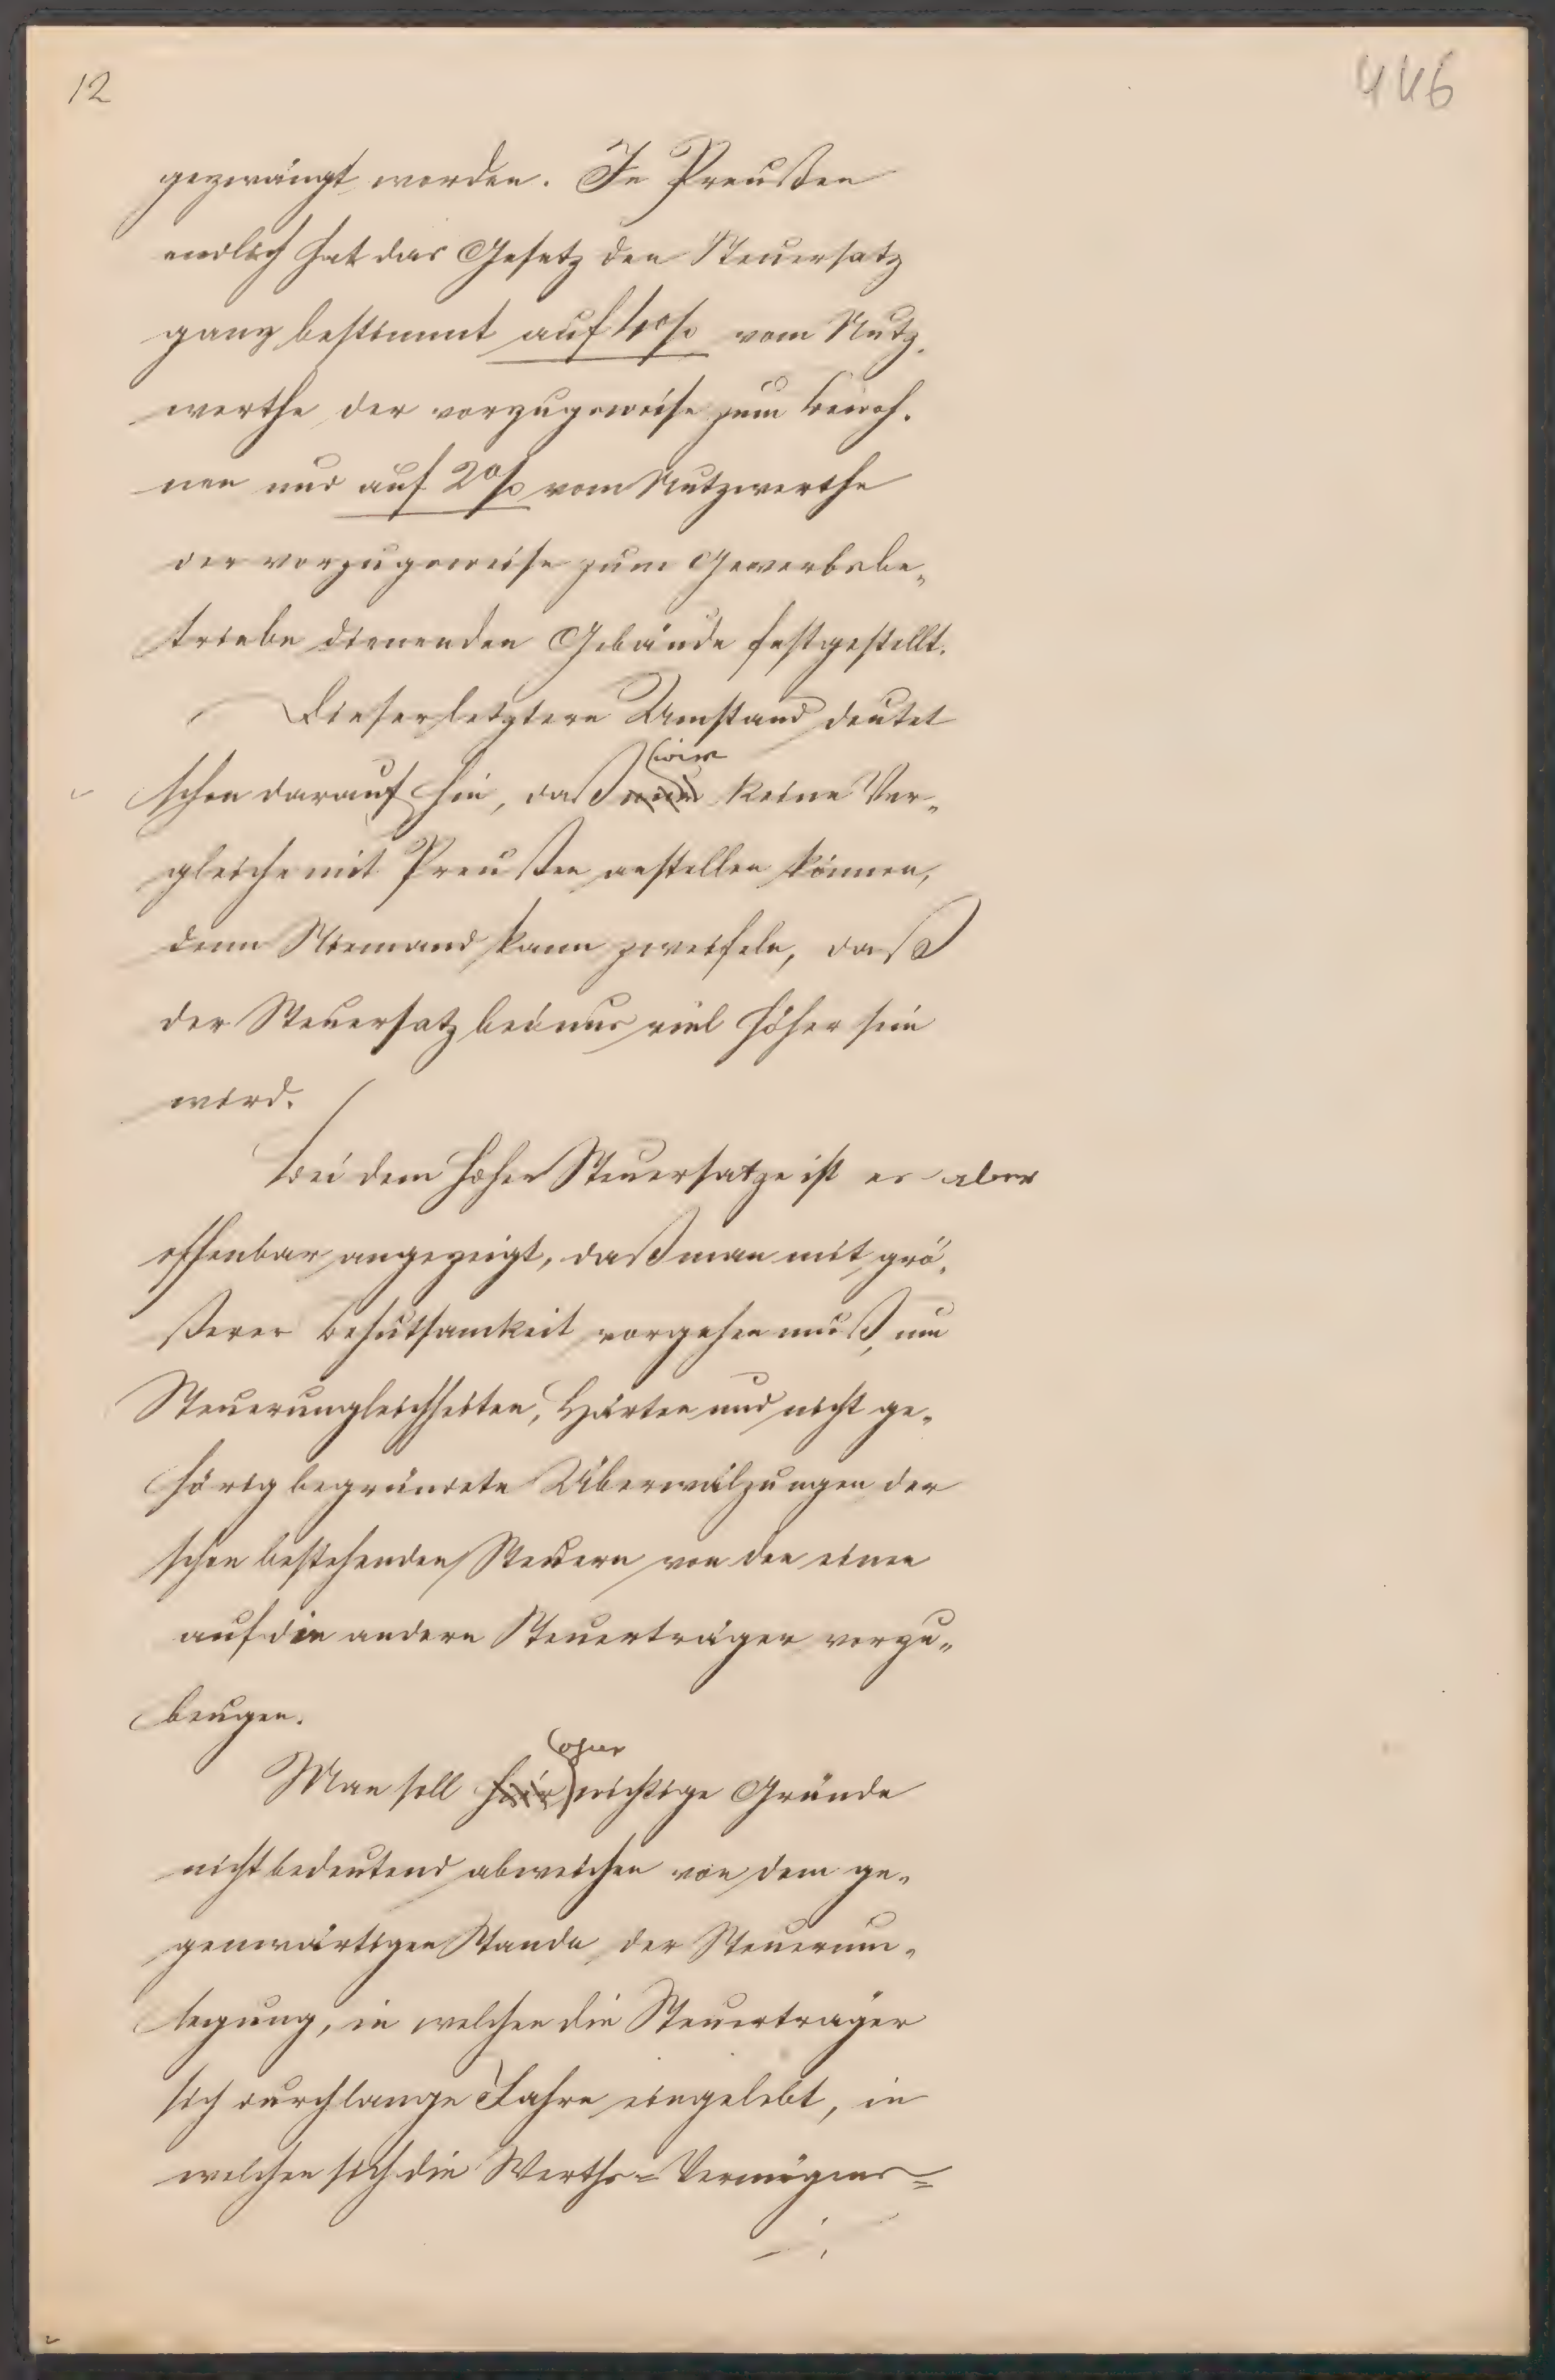 12
446
gezwängt worden. In Preußen
endlich hat das Gesetz den Steuersatz
ganz bestimmt auf 4% vom Nutz-
werthe der vorzugsweise zum Bewoh-
nen und auf 2% vom Nutzwerthe
der vorzugsweise zum Gewerbsbe-
triebe dienenden Gebäude festgestellt.
Dieser letztere Umstand deutet
wir
schon darauf hin, daß keine Ver-
gleiche mit Preußen anstellen können,
denn Niemand kann zweifeln, daß
der Steuersatz bei uns viel höher sein
wird.
Bei dem hohen Steuersatze ist es aber
offenbar angezeigt, daß man mit grö-
ßerer Behutsamkeit vorgehen muß, um
Steuerungleichheiten, Härten und nicht ge-
hörig begründete Überwälzungen der
schon bestehenden Steuern von den einen
auf die andern Steuerträger vorzu-
beugen.
ohne
Man soll wichtige Gründe
nicht bedeutend abweichen von dem ge-
genwärtigen Stande der Steuerum-
legung, in welchen die Steuerträger
sich durch lange Jahre eingelebt, in
welchen sich die Werths-Vermögens-